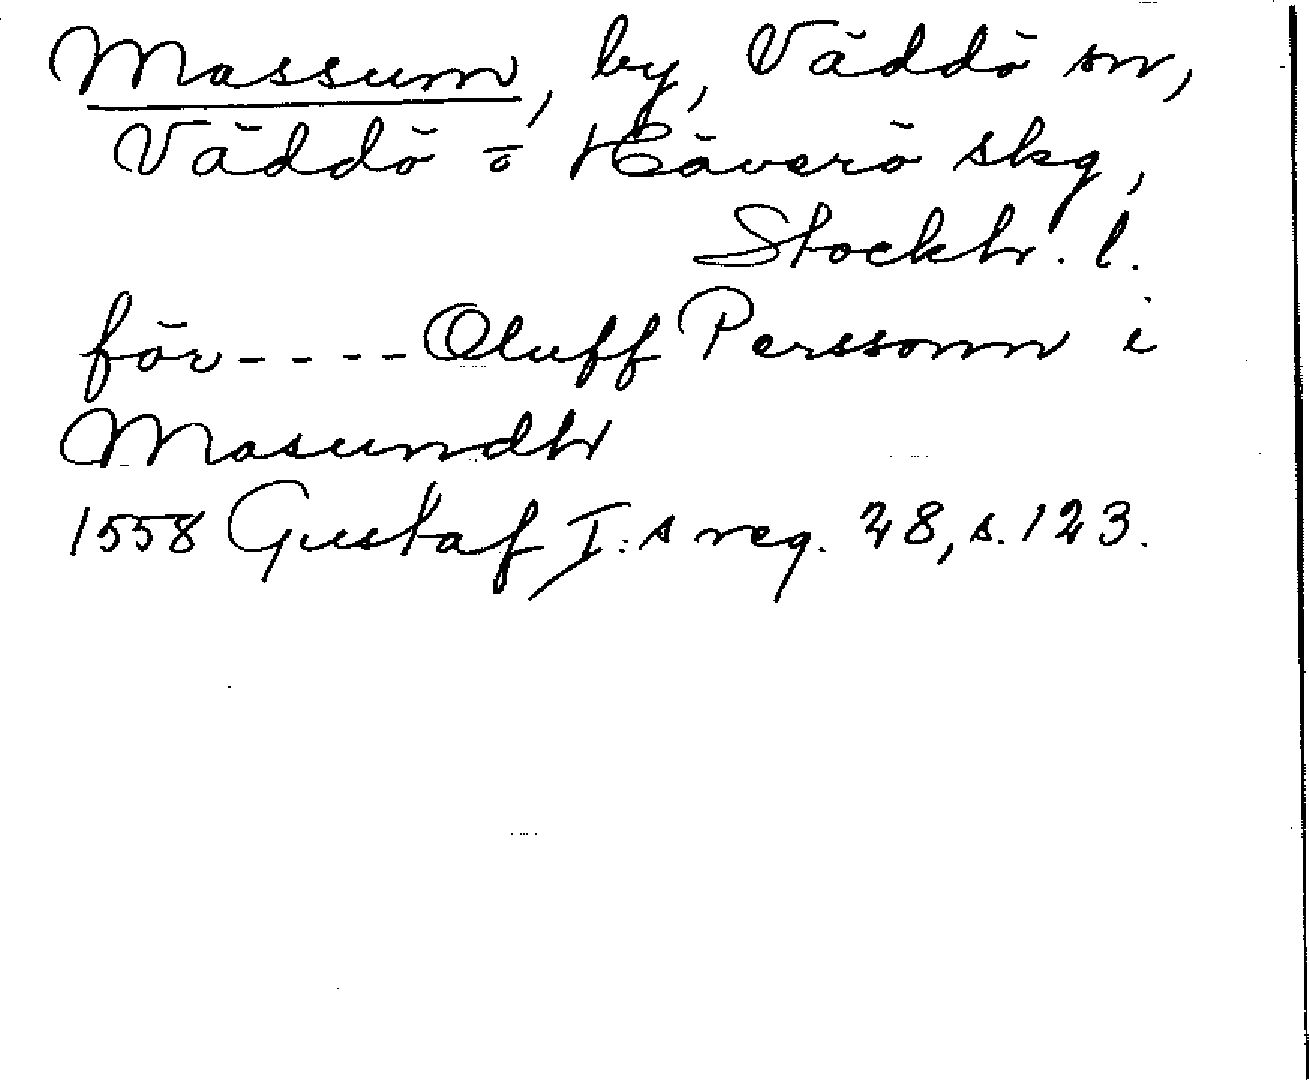 Massum, by, Väddö sn,
Väddö o Häverö skg,
Stockh. l.
för---- Oluff Perssonn i
Masundh
1558 Gustaf I:s reg. 28, s. 123.